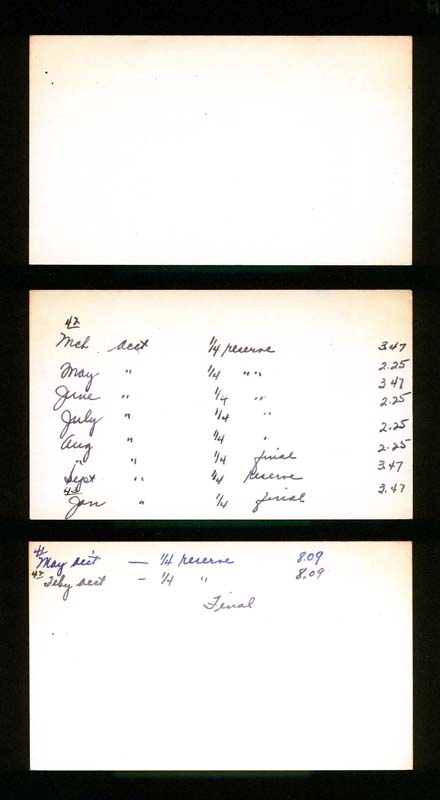 42
Mch acct 1/4 reserve 3.47
May " 1/4 " " 2.25
June " 1/4 " 3.47
July " 1/4 " 2.25
Aug " 1/4 " 2.25
" " 1/4 final 2.25
Sept " 1/4 Reserve 3.47
43
Jan " 1/4 final 3.47
41
May acc't — 1/4 reserve 8.09
42
Feby acct - 1/4 " 8.09
Final